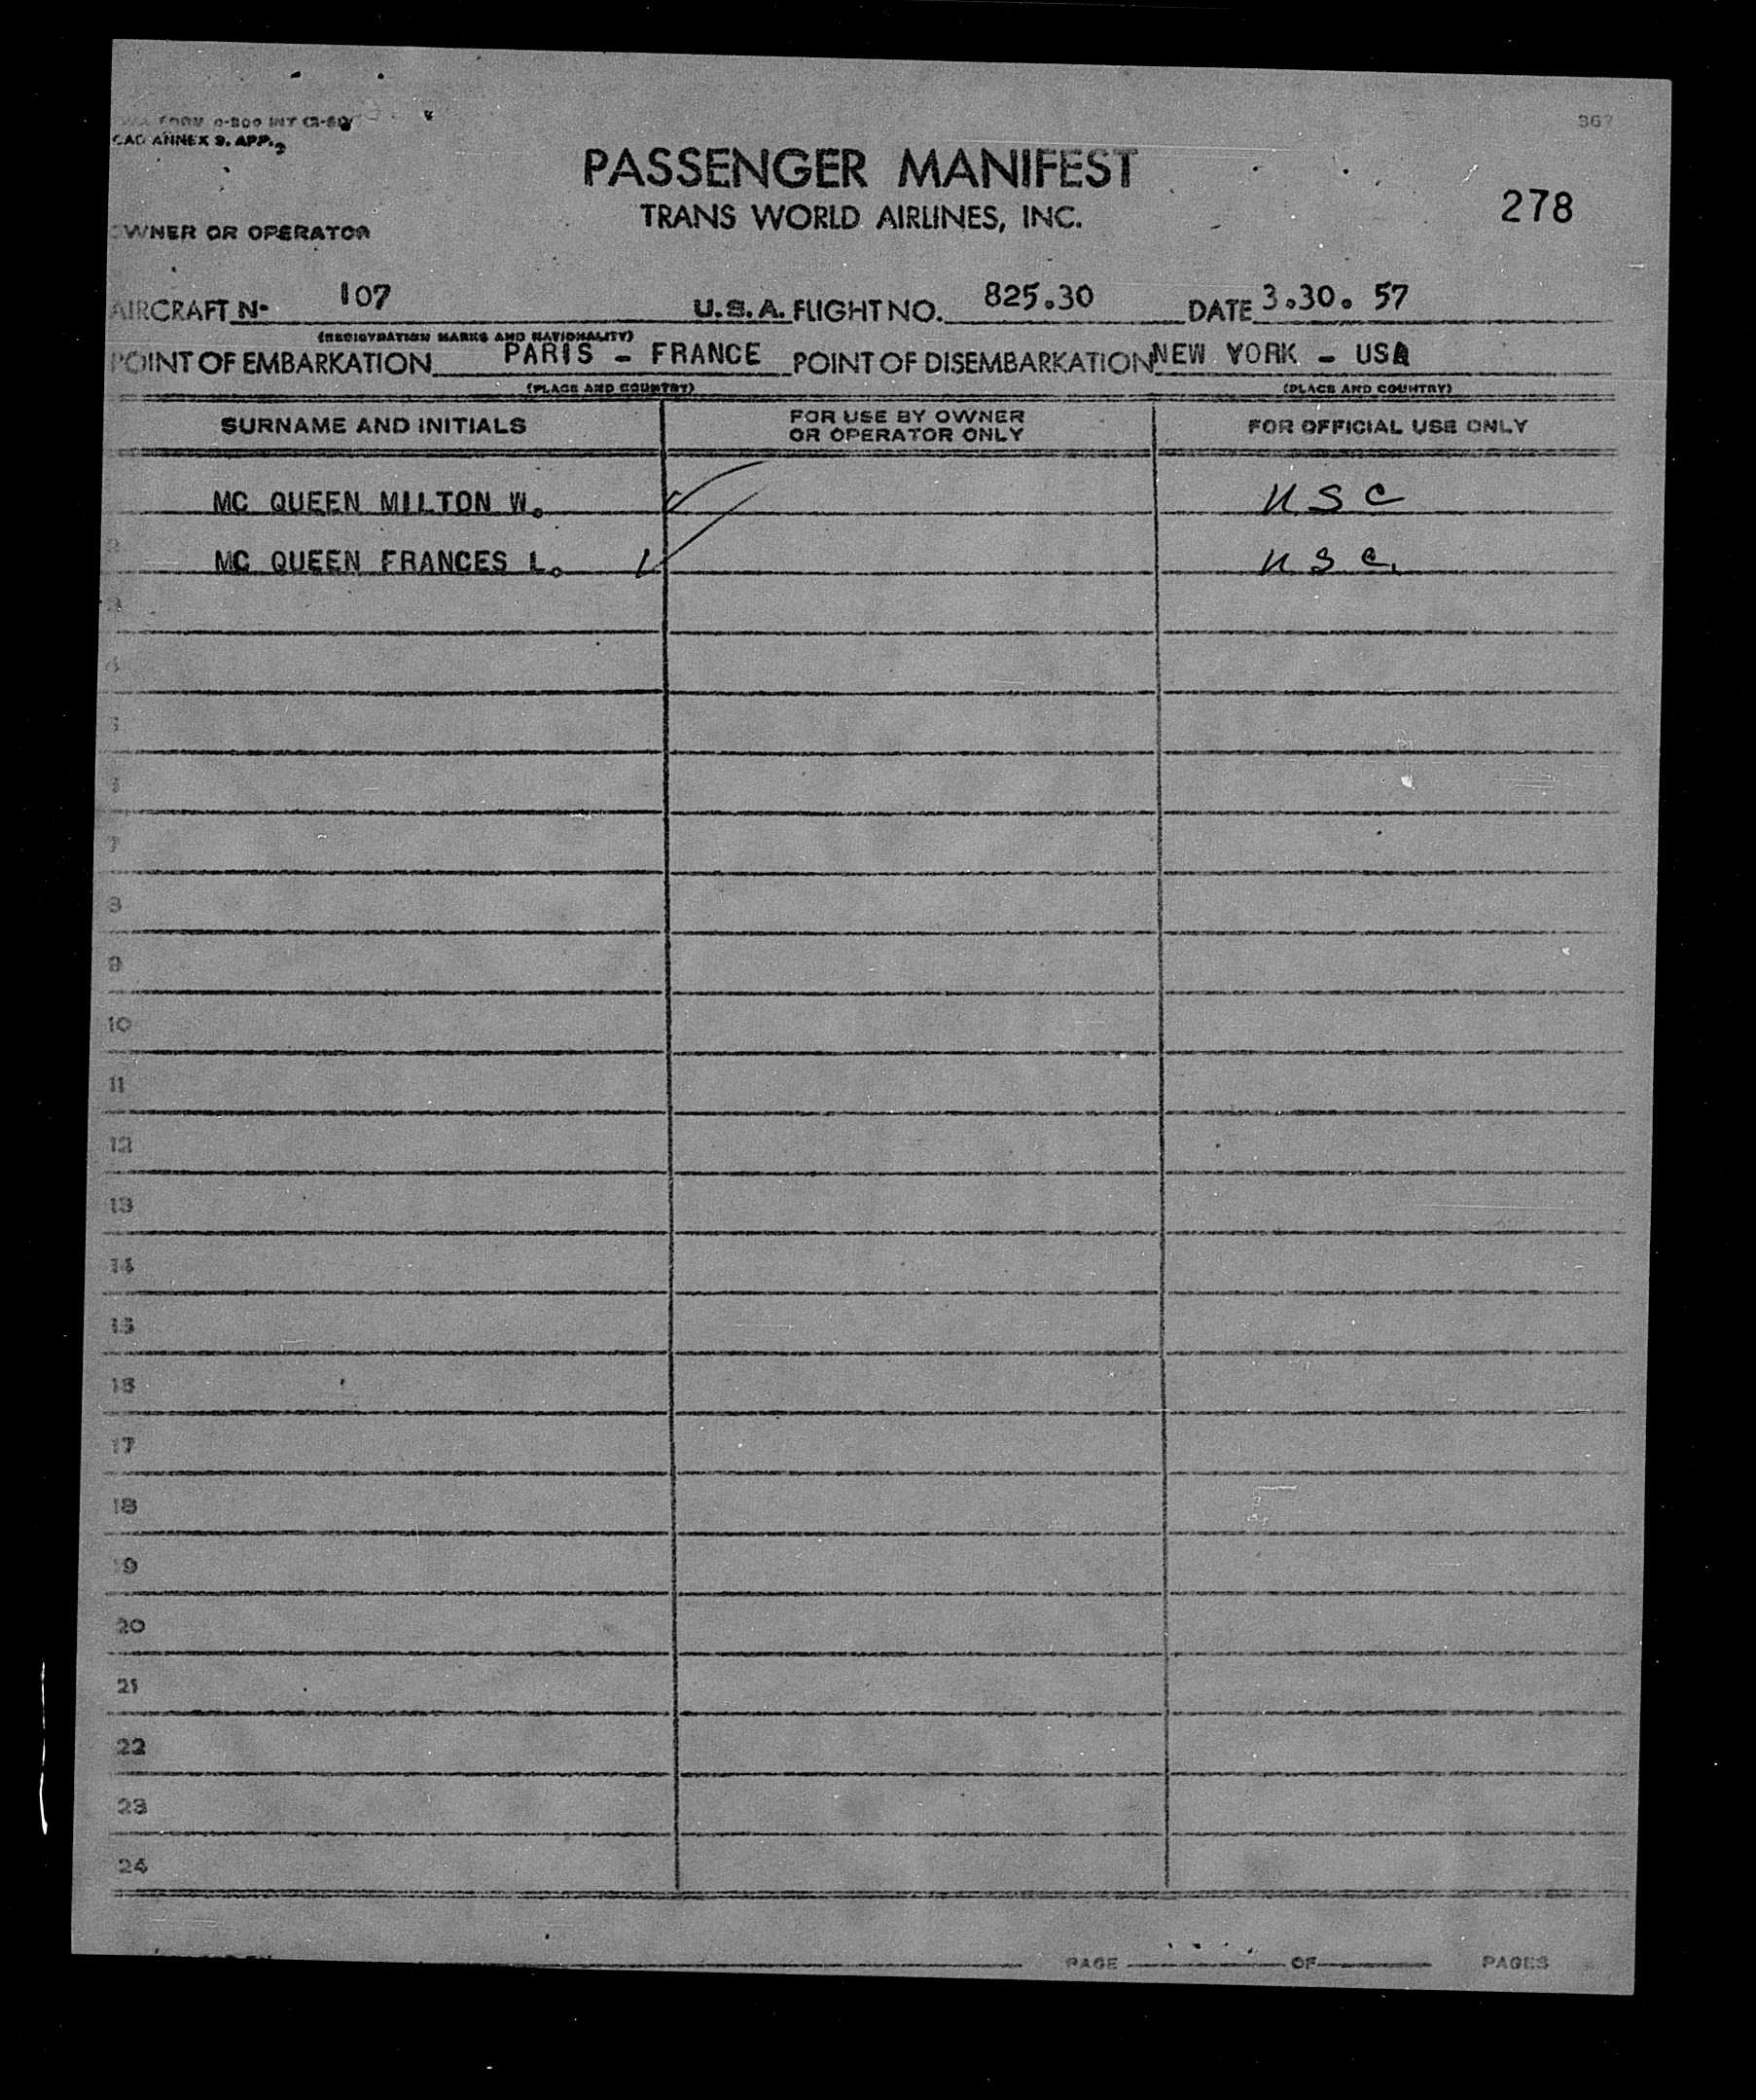 FORM 0-800 INT (2-50)
367
CAO ANNEX 9. APP. 2
PASSENGER MANIFEST
278
TRANS WORLD AIRLINES, INC.
OWNER OR OPERATOR
AIRCRAFT Nº 107 U.S.A. FLIGHT NO. 825.30 DATE 3.30. 57
(REGISTRATION MARKS AND NATIONALITY)
POINT OF EMBARKATION PARIS - FRANCE POINT OF DISEMBARKATION NEW YORK - USA
(PLACE AND COUNTRY) (PLACE AND COUNTRY)
SURNAME AND INITIALS FOR USE BY OWNER OR OPERATOR ONLY FOR OFFICIAL USE ONLY
MC QUEEN MILTON W. USC
2 MC QUEEN FRANCES L. USC.
3
4
5
6
7
8
9
10
11
12
13
14
15
16
17
18
19
20
21
22
23
24
PAGE OF PAGES